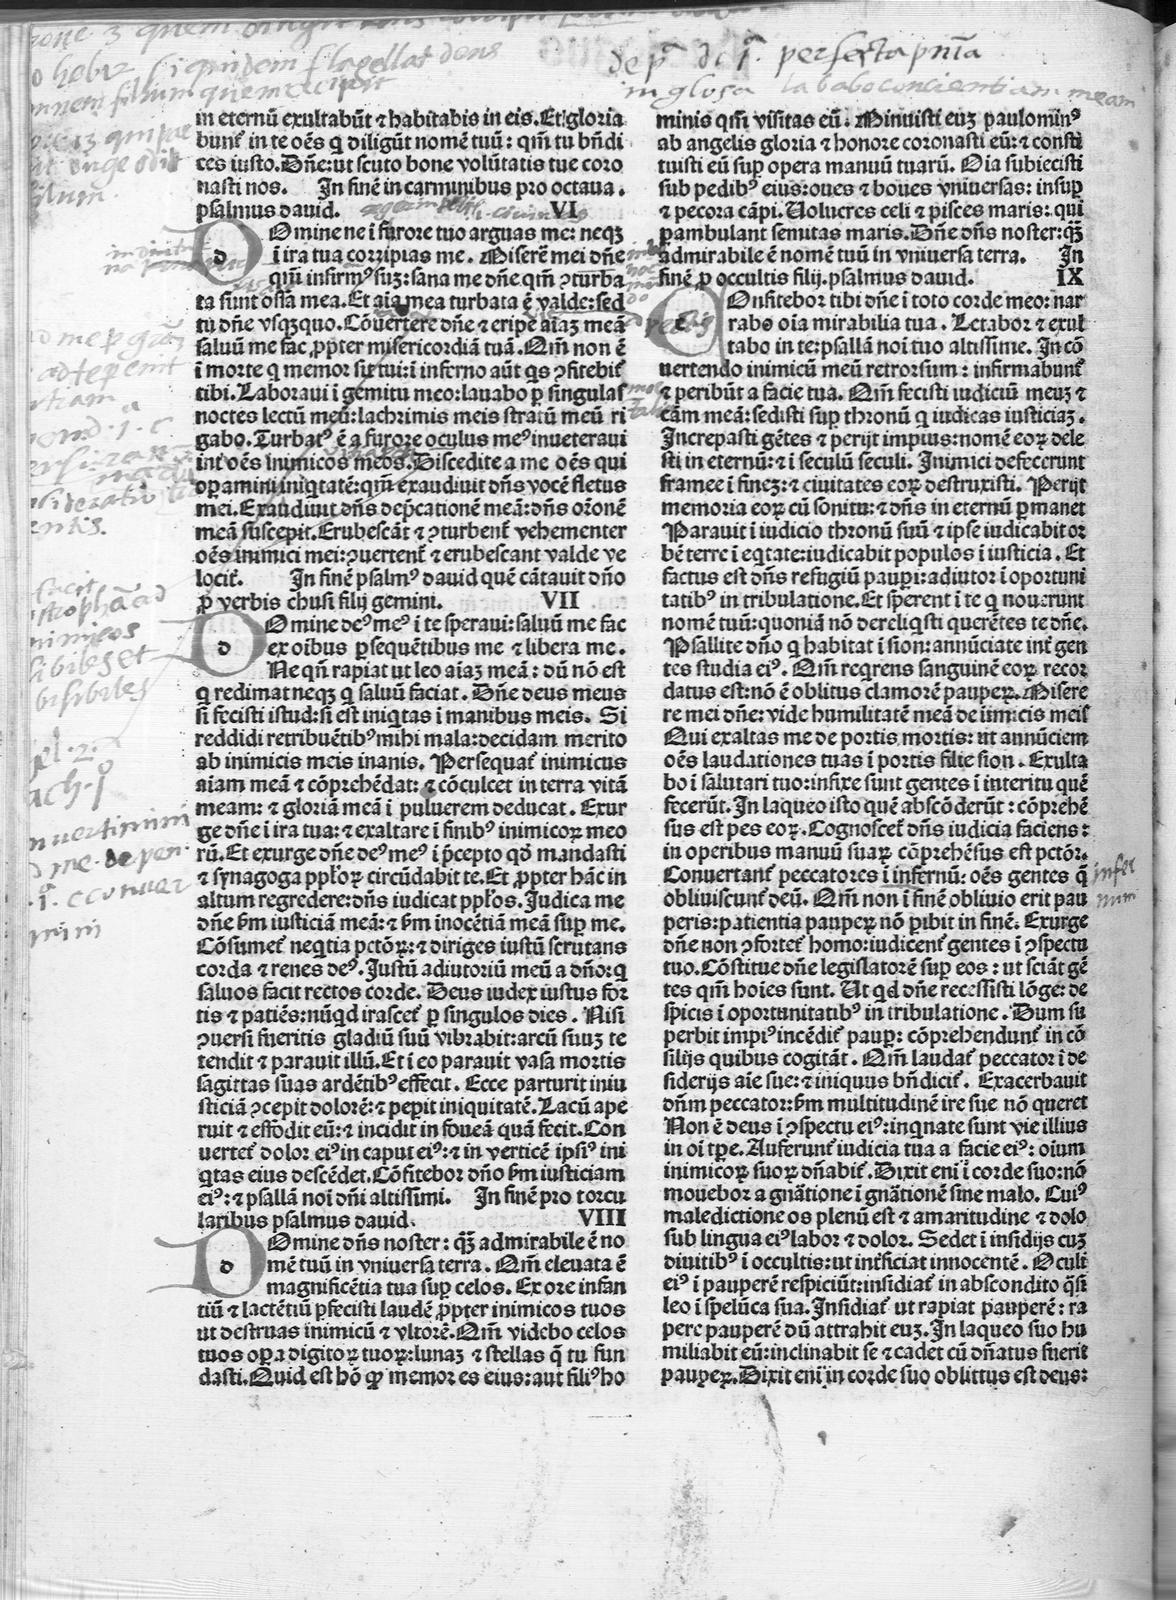 in eternū exultabūt ⁊ habitabis in eis. Et gloria
bunť in te oēs q̄ diligūt nomē tuū: qm̄ tu bn̄di
ces iusto. Dn̄e: ut scuto bone volūtatis tue coro
nasti nos. In finē in carminibus pro octaua.
psalmus dauid. VI
d Omine ne ī furore tuo arguas me: neqꝫ
ī ira tua corripias me. Miserē mei dn̄e
qm̄ infirmꝰ suꝫ: sana me dn̄e qm̄ ꝯturba
ta sunt ossa mea. Et aīa mea turbata ē valde: sed
tu dn̄e vsqꝫquo. Cōuertere dn̄e ⁊ eripe aīaꝫ meā
saluū me fac ꝓpter misericordiā tuā. Qm̄ non ē
ī morte q̄ memor sit tui: ī inferno aūt q̄s ꝯfitebiť
tibi. Laboraui ī gemitu meo: lauabo ꝑ singulas
noctes lectū meū: lachrimis meis stratū meū ri
gabo. Turbatꝰ ē a furore oculus meꝰ inueteraui
inť oēs inimicos meos. Discedite a me oēs qui
oꝑamini iniq̄tatē: qm̄ exaudiuit dn̄s vocē fletus
mei. Exaudiuit dn̄s dep̄cationē meā: dn̄s orōnē
meā suscepit. Erubescāt ⁊ ꝯturbenť vehementer
oēs inimici mei: ꝯuertenť ⁊ erubescant valde ve
lociť. In finē psalmꝰ dauid quē cātauit dn̄o
ꝓ verbis chusi filij gemini. VII
d Omine deꝰ meꝰ ī te speraui: saluū me fac
ex oībus ꝑsequētibus me ⁊ libera me.
Ne qn̄ rapiat ut leo aīaꝫ meā: dū nō est
q̄ redimat neqꝫ q̄ saluū faciat. Dn̄e deus meus
si feci istud: si est iniq̄tas ī manibus meis. Si
reddidi retribuētibꝰ mihi mala: decidam merito
ab inimicis meis inanis. Persequať inimicus
aīam meā ⁊ cōprehēdat: ⁊ cōculcet in terra vitā
meam: ⁊ gloriā meā ī puluerem deducat. Exur
ge dn̄e ī ira tua: ⁊ exaltare ī finibꝰ inimicoꝝ meo
rū. Et exurge dn̄e deꝰ meꝰ ī p̄cepto qd̄ mandasti
⁊ synagoga ppl̄oꝝ circūdabit te. Et ꝓpter hāc in
altum regredere: dn̄s iudicat ppl̄os. Judica me
dn̄e ẜm iusticiā meā: ⁊ ẜm inocētiā meā suꝑ me.
Cōsumeť neq̄tia pctōꝝ: ⁊ diriges iustū scrutans
corda ⁊ renes deꝰ. Justū adiutoriū meū a dn̄o: q̄
saluos facit rectos corde. Deus iudex iustus for
tis ⁊ patiēs: nūqd̄ irasceť ꝑ singulos dies. Nisi
ꝯuersi fueritis gladiū suū vibrabit: arcū suuꝫ te
tendit ⁊ parauit illū. Et ī eo parauit vasa mortis
sagittas suas ardētibꝰ effecit. Ecce parturit iniu
sticiā ꝯcepit dolorē: ⁊ peꝑit iniquitatē. Lacū ape
ruit ⁊ effodit eū: ⁊ incidit in foueā quā fecit. Con
uerteť dolor eiꝰ in caput eiꝰ: ⁊ in verticē ipsiꝰ ini
q̄tas eius descēdet. Cōfitebor dn̄o ẜm iusticiam
eiꝰ: ⁊ psallā noī dn̄i altissimi. In finē pro torcu
laribus psalmus dauid. VIII
d Omine dn̄s noster: qꝫ admirabile ē no
mē tuū in vniuersa terra. Qm̄ eleuata ē
magnificētia tua suꝑ celos. Ex ore infan
tiū ⁊ lactētiū ꝑfecisti laudē ꝓpter inimicos tuos
ut destruas inimicū ⁊ vltorē. Qm̄ videbo celos
tuos oꝑa digitoꝝ tuoꝝ: lunaꝫ ⁊ stellas q̄ tu fun
dasti. Quid est hō ꝙ memor es eius: aut filiꝰ ho
de p̄ di i. perfecta pnīa
in glosa
minis qm̄ visitas eū. Minuisti euꝫ paulominꝰ
ab angelis gloria ⁊ honore coronasti eū: ⁊ consti
tuisti eū suꝑ opera manuū tuarū. Oīa subiecisti
sub pedibꝰ eius: oues ⁊ boues vniuersas: insuꝑ
⁊ pecora cāpi. Uolucres celi ⁊ pisces maris: qui
ꝑambulant semitas maris. Dn̄e dn̄s noster: qꝫ
admirabile ē nomē tuū in vniuersa terra. In
finē ꝓ occultis filij. psalmus dauid. IX
c Onfitebor tibi dn̄e ī toto corde meo: nar
rabo oīa mirabilia tua. Letabor ⁊ exul
tabo in te: psallā noī tuo altissime. In cō
uertendo inimicū meū retrorsum: infirmabunť
⁊ peribūt a facie tua. Qm̄ fecisti iudiciū meuꝫ ⁊
cām meā: sedisti suꝑ thronū q̄ iudicas iusticiaꝫ.
Increpasti gētes ⁊ perijt impius: nomē eoꝝ dele
sti in eternū: ⁊ ī seculū seculi. Inimici defecerunt
framee ī fineꝫ: ⁊ ciuitates eoꝝ destruxisti. Perijt
memoria eoꝝ cū sonitu: ⁊ dn̄s in eternū ꝑmanet
Parauit ī iudicio thronū suū ⁊ ipse iudicabit or
bē terre ī eq̄tate: iudicabit populos ī iusticia. Et
factus est dn̄s refugiū pauꝑi: adiutor ī oportuni
tatibꝰ in tribulatione. Et sperent ī te q̄ nouerunt
nomē tuū: quoniā nō dereliq̄sti querētes te dn̄e.
Psallite dn̄o q̄ habitat ī sion: annūciate inť gen
tes studia eiꝰ. Qm̄ req̄rens sanguinē eoꝝ recor
datus est: nō ē oblitus clamorē pauꝑeꝝ. Misere
re mei dn̄e: vide humilitatē meā de inimicis meis
Qui exaltas me de portis mortis: ut annūciem
oēs laudationes tuas ī portis filie sion. Exulta
bo ī salutari tuo: infixe sunt gentes ī interitu quē
fecerūt. In laqueo isto quē abscōderūt: cōprehē
sus est pes eoꝝ. Cognosceť dn̄s iudicia faciens:
in operibus manuū suaꝝ cōprehēsus est pctōr.
Conuertanť peccatores ī infernū: oēs gentes q̄
obliuiscunť deū. Qm̄ non ī finē obliuio erit pau
peris: patientia pauperꝝ nō ꝑibit in finē. Exurge
dn̄e non ꝯforteť homo: iudicenť gentes ī ꝯspectu
tuo. Cōstitue dn̄e legislatorē suꝑ eos: ut sciāt gē
tes qm̄ hoīes sunt. Ut qd̄ dn̄e recessisti lōge: de
spicis ī oportunitatibꝰ in tribulatione. Dum su
perbit impiꝰ incēdiť pauꝑ: cōprehendunť in cō
silijs quibus cogitāt. Qm̄ laudať peccator ī de
siderijs aīe sue: ⁊ iniquus bn̄diciť. Exacerbauit
dn̄m peccator: ẜm multitudinē ire sue nō queret
Non ē deus ī ꝯspectu eiꝰ: inq̄nate sunt vie illius
in oī tꝑe. Auferunť iudicia tua a facie eiꝰ: oīum
inimicoꝝ suoꝝ dn̄abiť. Dixit enī ī corde suo: nō
mouebor a gnātione ī gnātionē sine malo. Cuiꝰ
maledictione os plenū est ⁊ amaritudine ⁊ dolo
sub lingua eiꝰ labor ⁊ dolor. Sedet ī insidijs cuꝫ
diuitibꝰ ī occultis: ut inťficiat innocentē. Oculi
eiꝰ ī pauperē respiciūt: insidiať in abscondito q̄si
leo ī spelūca sua. Insidiať ut rapiat pauperē: ra
pere pauperē dū attrahit euꝫ. In laqueo suo hu
miliabit eū: inclinabit se ⁊ cadet cū dn̄atus fuerit
pauꝑeꝝ. Dixit enī in corde suo oblitus est deus: